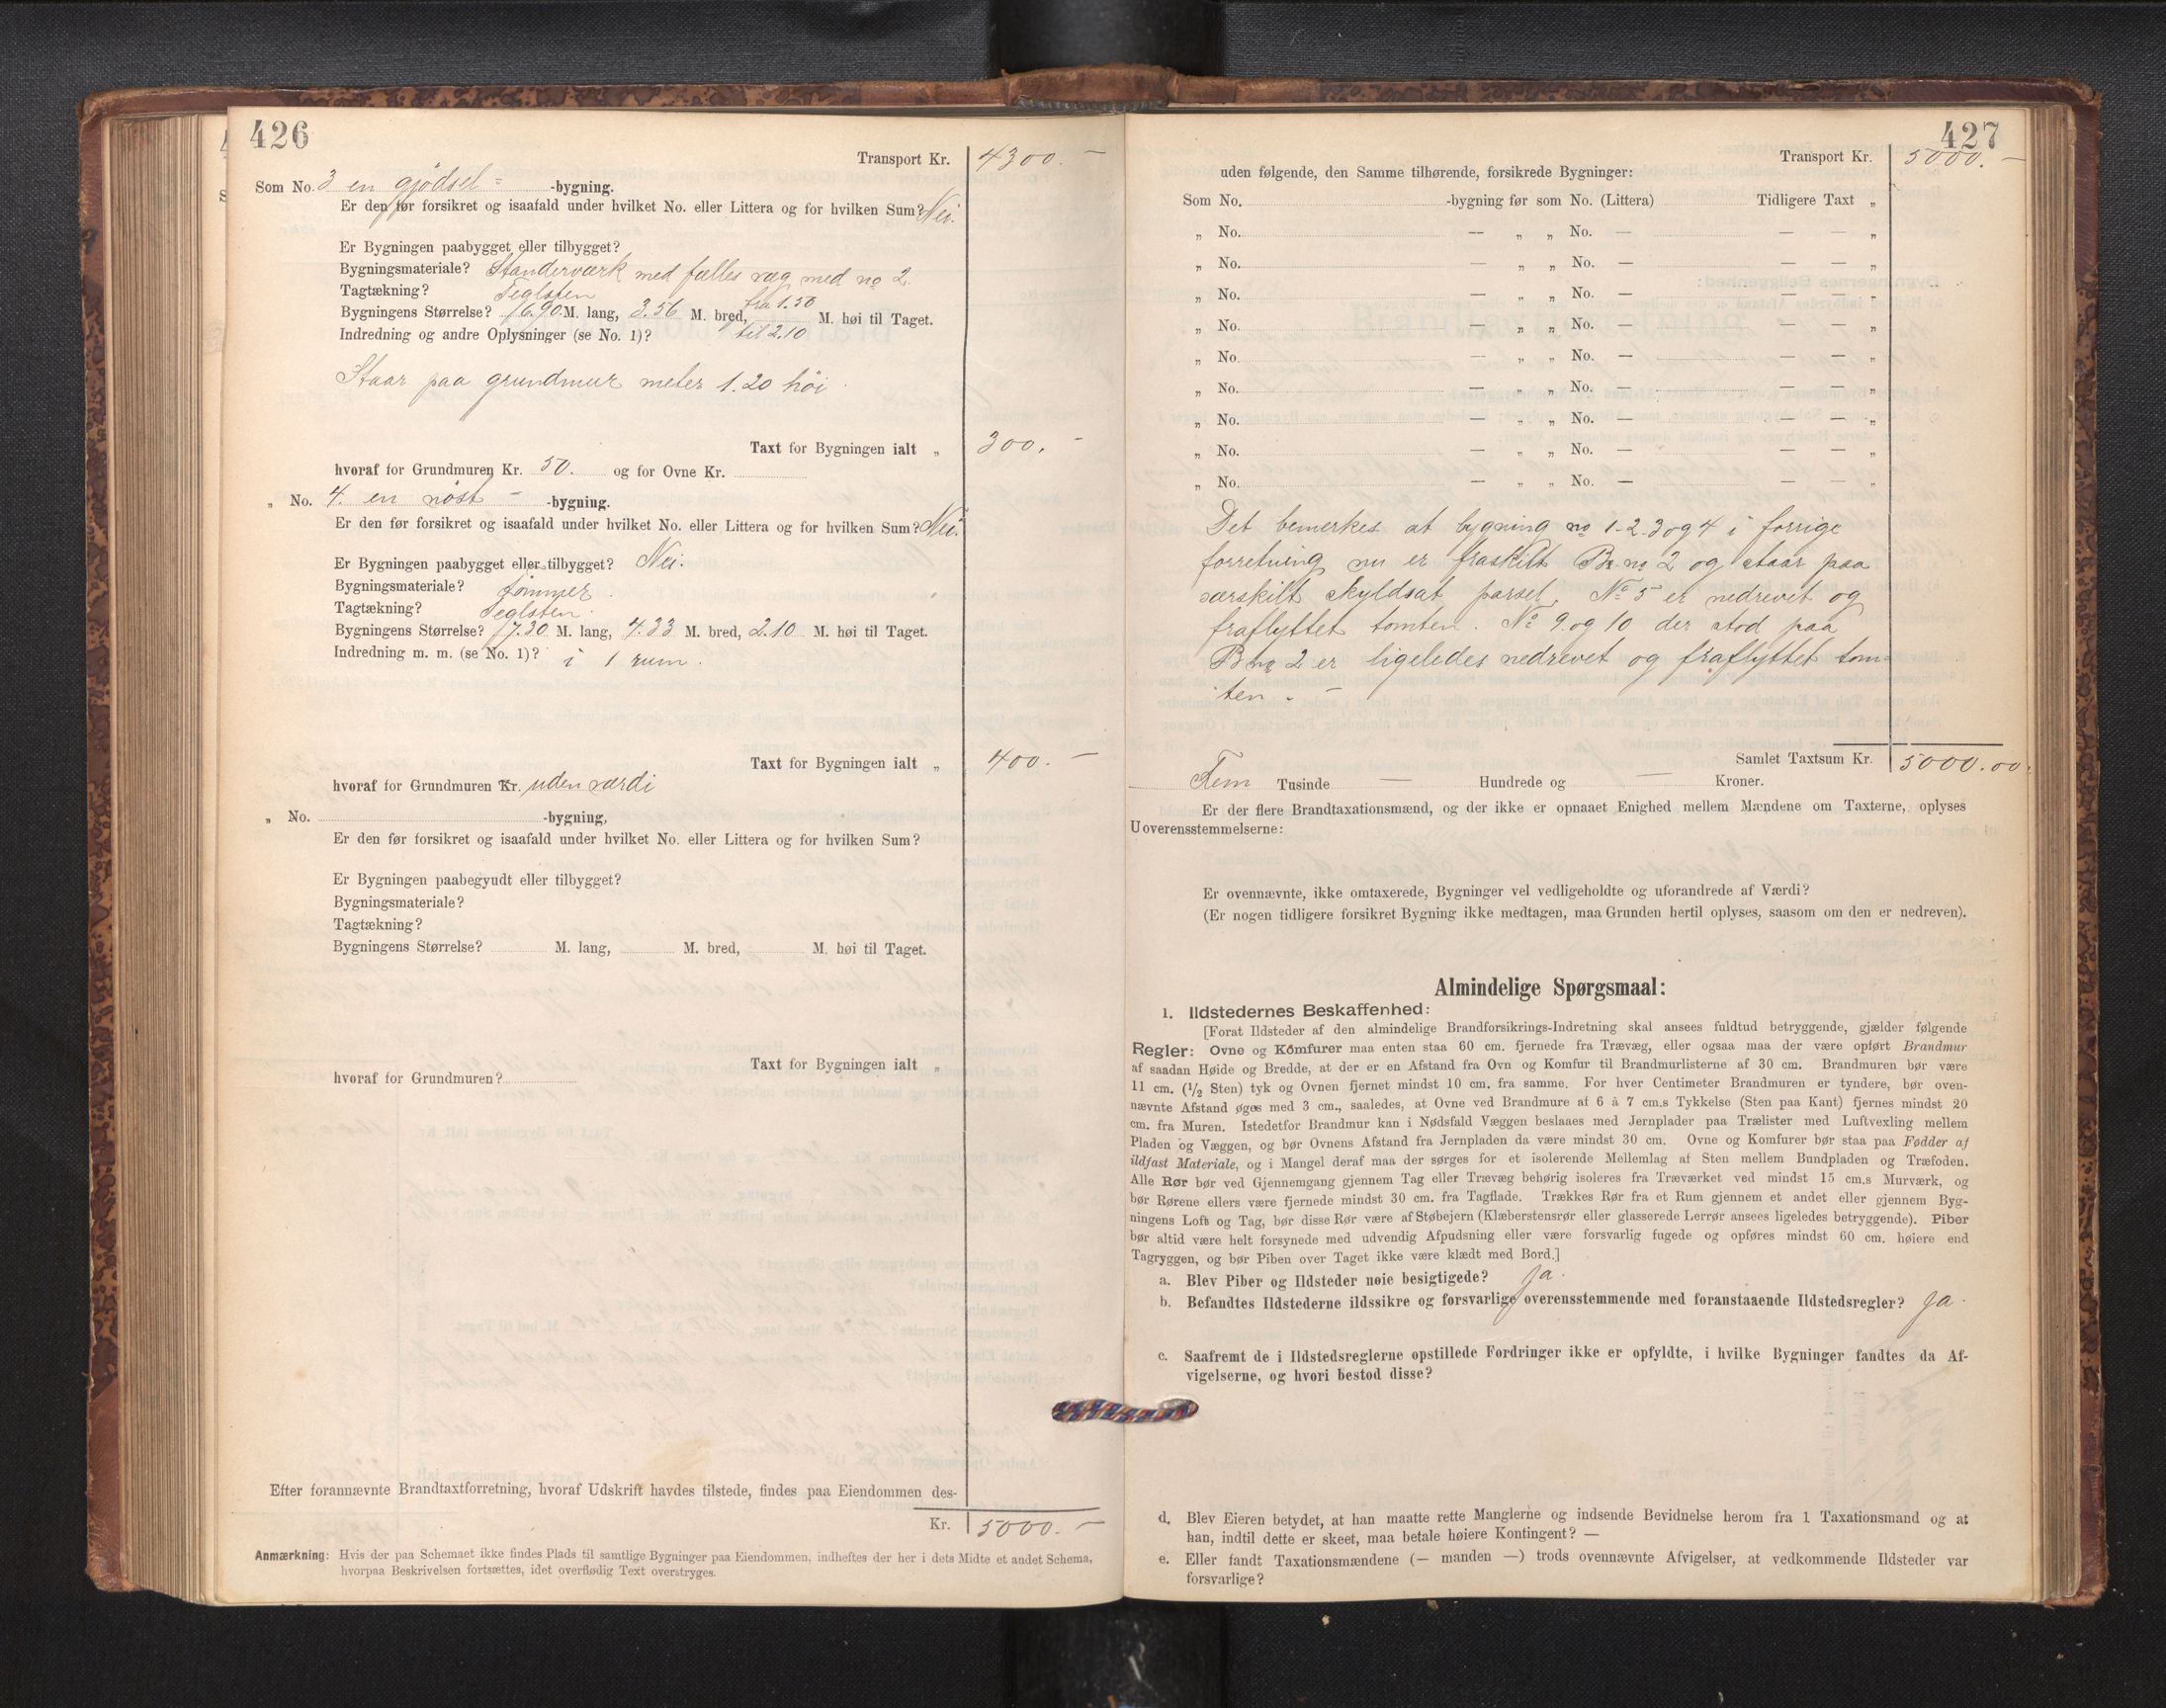 426
Transport Kr. 4300. —
Som No. 3 en gjödsel= -bygning.
Er den før forsikret og isaafald under hvilket No. eller Littera og for hvilken Sum? Nei.
Er Bygningen paabygget eller tilbygget?
Bygningsmateriale? Standerværk med fælles væg med no 2.
Tagtækning? Teglsten
Bygningens Størrelse? 6.90 M. lang, 3.56 M. bred, fra 1.50 til 2.10 M. høi til Taget.
Indredning og andre Oplysninger (se No. 1)?
Staar paa grundmur meter 1.20 höi.
Taxt for Bygningen ialt „ 300. -
hvoraf for Grundmuren Kr. 50. og for Ovne Kr.
„ No. 4. en nöst - -bygning.
Er den før forsikret og isaafald under hvilket No. eller Littera og for hvilken Sum? Nei.
Er Bygningen paabygget eller tilbygget? Nei.
Bygningsmateriale? tömmer.
Tagtækning? Teglsten.
Bygningens Størrelse? 7.30 M. lang, 4.33 M. bred, 2.10 M. høi til Taget.
Indredning m. m. (se No. 1)? i 1 rum.
Taxt for Bygningen ialt „ 400. —
hvoraf for Grundmuren Kr. uden værdi
„ No. -bygning,
Er den før forsikret og isaafald under hvilket No. eller Littera og for hvilken Sum?
Er Bygningen paabegyudt eller tilbygget?
Bygningsmateriale?
Tagtækning?
Bygningens Størrelse? M. lang, M. bred, M. høi til Taget.
Taxt for Bygningen ialt „
hvoraf for Grundmuren?
Efter forannævnte Brandtaxtforretning, hvoraf Udskrift havdes tilstede, findes paa Eiendommen des-
Kr. 5000. —
Anmærkning: Hvis der paa Schemaet ikke findes Plads til samtlige Bygninger paa Eiendommen, indheftes der her i dets Midte et andet Schema,
hvorpaa Beskrivelsen fortsættes, idet overflødig Text overstryges.
427
Transport Kr. 5000. —
uden følgende, den Samme tilhørende, forsikrede Bygninger:
Som No. -bygning før som No. (Littera) Tidligere Taxt „
„ No. — „ „ No. — — — „
„ No. — „ „ No. — — — „
„ No. — „ „ No. — — — „
„ No. — „ „ No. — — — „
„ No. — „ „ No. — — — „
„ No. — „ „ No. — — — „
„ No. — „ „ No. — — — „
„ No. — „ „ No. — — — „
„ No. — „ „ No. — — — „
Det bemerkes at bygning no 1-2.3 og 4 i forrige
forretning nu er fraskilt Br. no 2 og staar paa
særskilt skyldsat parsel. No 5 er nedrevet og
fraflyttet tomten. No 9. og 10 der stod paa
B no 2 er ligeledes nedrevet og fraflyttet tom-
ten. -
Samlet Taxtsum Kr. 5000.00.
Fem Tusinde — Hundrede og — Kroner.
Er der flere Brandtaxationsmænd, og der ikke er opnaaet Enighed mellem Mændene om Taxterne, oplyses
Uoverensstemmelserne:
Er ovennævnte, ikke omtaxerede, Bygninger vel vedligeholdte og uforandrede af Værdi?
(Er nogen tidligere forsikret Bygning ikke medtagen, maa Grunden hertil oplyses, saasom om den er nedreven).
Almindelige Spørgsmaal:
1. Ildstedernes Beskaffenhed:
[Forat Ildsteder af den almindelige Brandforsikrings-Indretning skal ansees fuldtud betryggende, gjælder følgende
Regler: Ovne og Komfurer maa enten staa 60 cm. fjernede fra Trævæg, eller ogsaa maa der være opført Brandmur
af saadan Høide og Bredde, at der er en Afstand fra Ovn og Komfur til Brandmurlisterne af 30 cm. Brandmuren bør være
11 cm. (1/2 Sten) tyk og Ovnen fjernet mindst 10 cm. fra samme. For hver Centimeter Brandmuren er tyndere, bør oven-
nævnte Afstand øges med 3 cm., saaledes, at Ovne ved Brandmure af 6 à 7 cm.s Tykkelse (Sten paa Kant) fjernes mindst 20
cm. fra Muren. Istedetfor Brandmur kan i Nødsfald Væggen beslaaes med Jernplader paa Trælister med Luftvexling mellem
Pladen og Væggen, og bør Ovnens Afstand fra Jernpladen da være mindst 30 cm. Ovne og Komfurer bør staa paa Fødder af
ildfast Materiale, og i Mangel deraf maa der sørges for et isolerende Mellemlag af Sten mellem Bundpladen og Træfoden.
Alle Rør bør ved Gjennemgang gjennem Tag eller Trævæg behørig isoleres fra Træværket ved mindst 15 cm.s Murværk, og
bør Rørene ellers være fjernede mindst 30 cm. fra Tagflade. Trækkes Rør fra et Rum gjennem et andet eller gjennem Byg-
ningens Loft og Tag, bør disse Rør være af Støbejern (Klæberstensrør eller glasserede Lerrør ansees ligeledes betryggende). Piber
bør altid være helt forsynede med udvendig Afpudsning eller være forsvarlig fugede og opføres mindst 60 cm. høiere end
Tagryggen, og bør Piben over Taget ikke være klædt med Bord.]
a. Blev Piber og Ildsteder nøie besigtigede? Ja.
b. Befandtes Ildstederne ildssikre og forsvarlige overensstemmende med foranstaaende Ildstedsregler? Ja.
c. Saafremt de i Ildstedsreglerne opstillede Fordringer ikke er opfyldte, i hvilke Bygninger fandtes da Af-
vigelserne, og hvori bestod disse?
d. Blev Eieren betydet, at han maatte rette Manglerne og indsende Bevidnelse herom fra 1 Taxationsmand og at
han, indtil dette er skeet, maa betale høiere Kontingent? —
e. Eller fandt Taxationsmændene (— manden —) trods ovennævnte Afvigelser, at vedkommende Ildsteder var
forsvarlige?